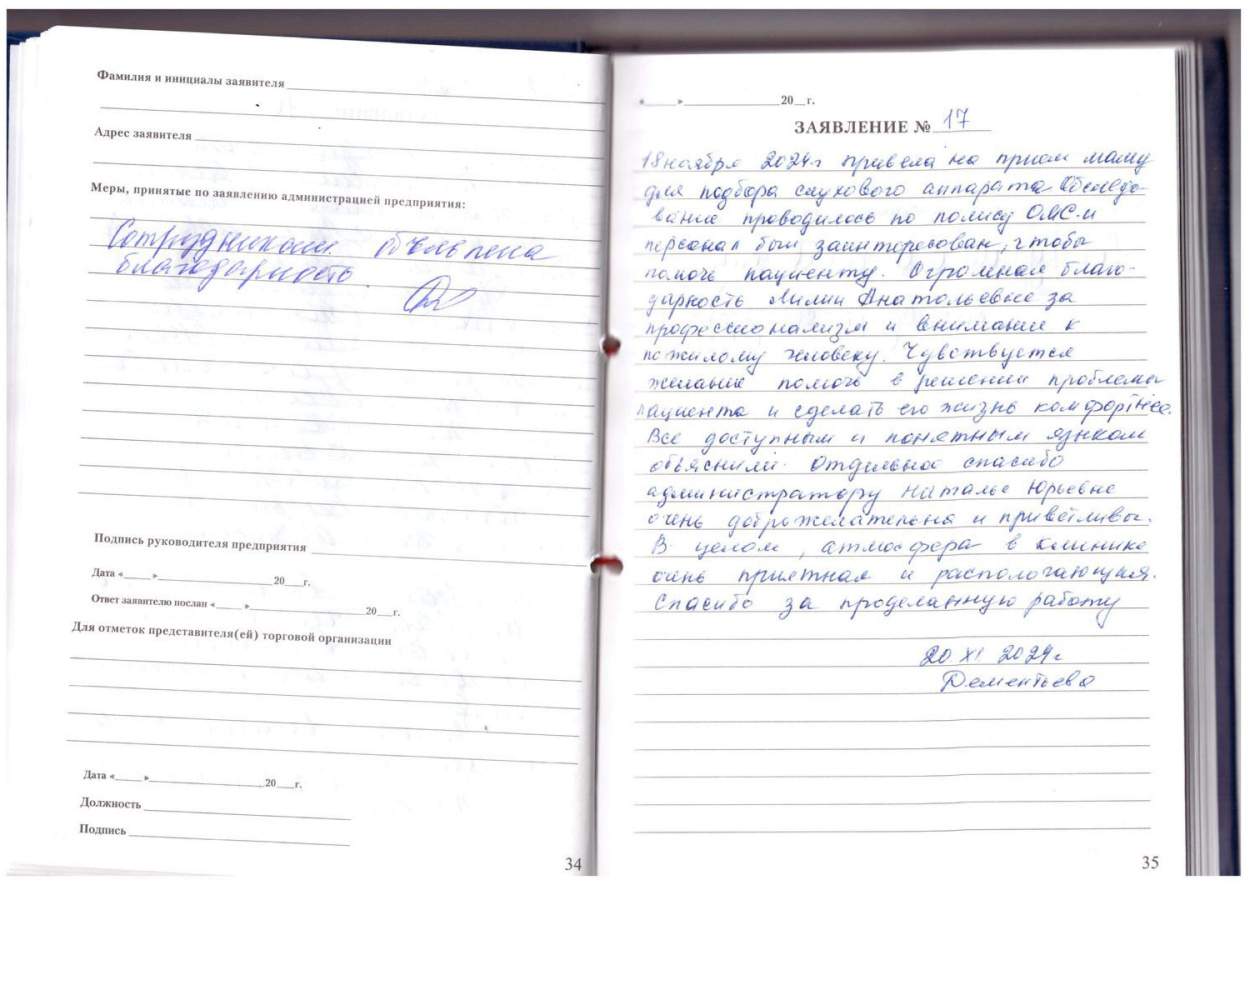 Фамилия и инициалы заявителя
Адрес заявителя
Меры, принятые по заявлению администрацией предприятия:
Сотрудникам объявлена
благодарность.
Подпись руководителя предприятия
Дата «___»___20__г.
Ответ заявителю послан «___»___20__г.
Для отметок представителя(ей) торговой организации
Дата «___»___20__г.
Должность
Подпись
34
«___»___20__г.
ЗАЯВЛЕНИЕ № 17
18 ноября 2024г привела на прием маму
для подбора слухового аппарата. Обследо-
вание проводилось по полису ОМС и
персонал был заинтересован, чтобы
помочь пациенту. Огромная благо-
дарность Лилии Анатольевне за
профессионализм и внимание к
пожилому человеку. Чувствуется
желание помочь в решении проблемы
пациента и сделать его жизнь комфортнее.
Все доступным и понятным языком
объяснили. Отдельное спасибо
администратору Наталье Юрьевне
очень доброжелательна и приветлива.
В целом, атмосфера в клинике
очень приятная и располагающая.
Спасибо за проделанную работу
20 XI 2024г
Дементьева
35